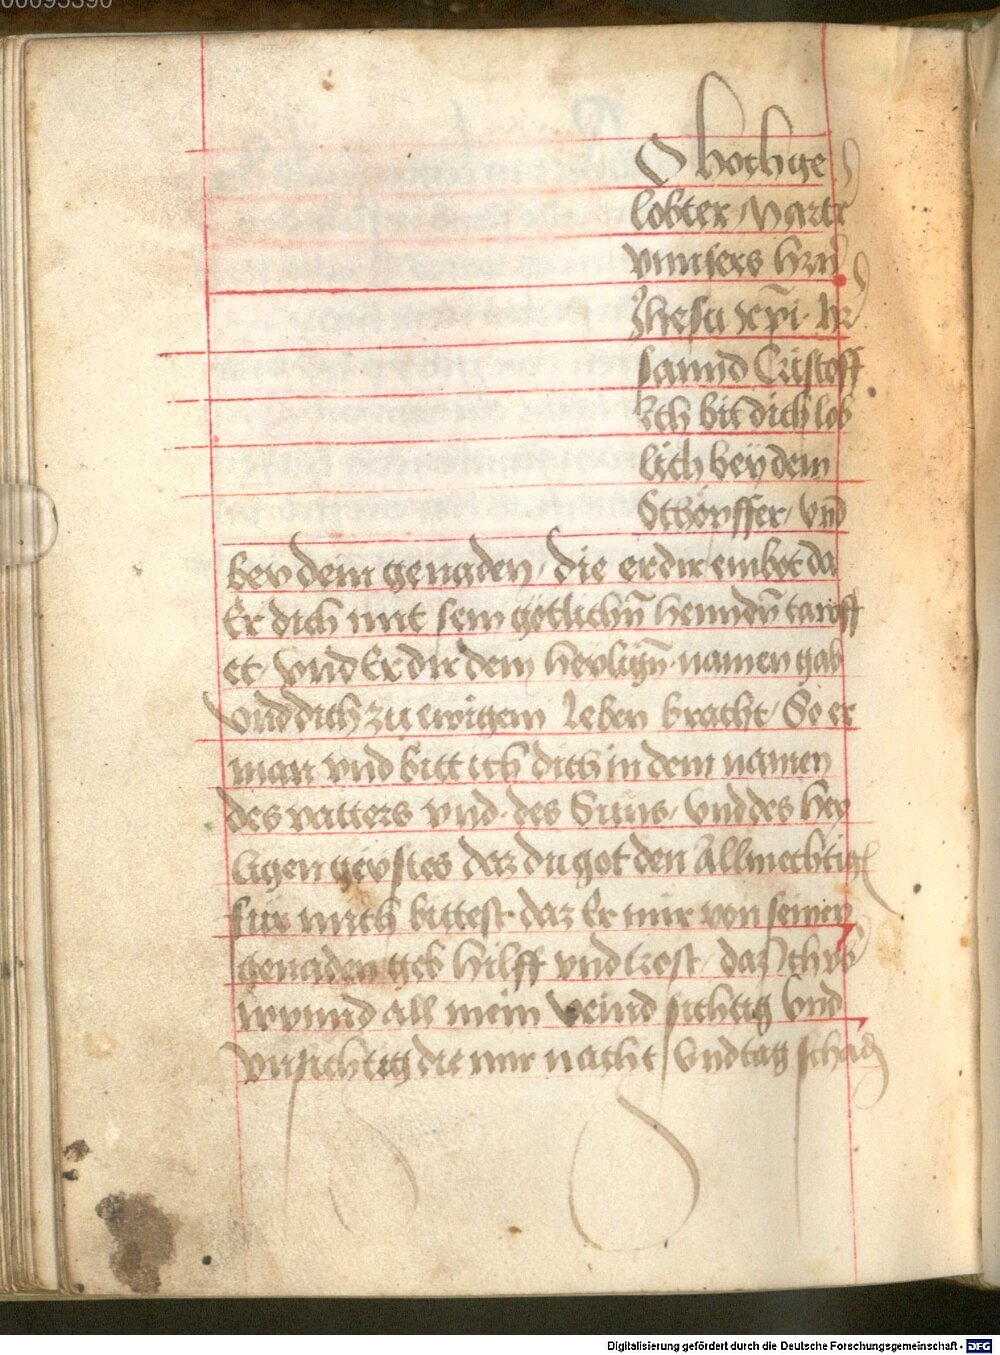 00095390
O hochge
lobter / martr
vnnsers hrn
Jhesu xpi hr
sannd Cristoff
Ich bit dich lob
lich bey dem
Schöpffer / vnd
bey dem genaden / die er dir embot da
Er dich mit sein götlichn henndn tawff
et / vnd Er dir dem heylign namen gab
vnd dich zu ewigem leben bracht / So er
man vnd bitt ich dich in dem namen
des vatters vnd des Suns / vnd des hey
ligen geystes daz du got den Allmechtign
für mich bittest daz Er mir von seinen
genaden geb hilff vnd trost / daz Ich vb
wynnd all mein veind sichtig vnd
vnsichtig die mir nacht vnd tag schadn
Digitalisierung gefördert durch die Deutsche Forschungsgemeinschaft - DFG